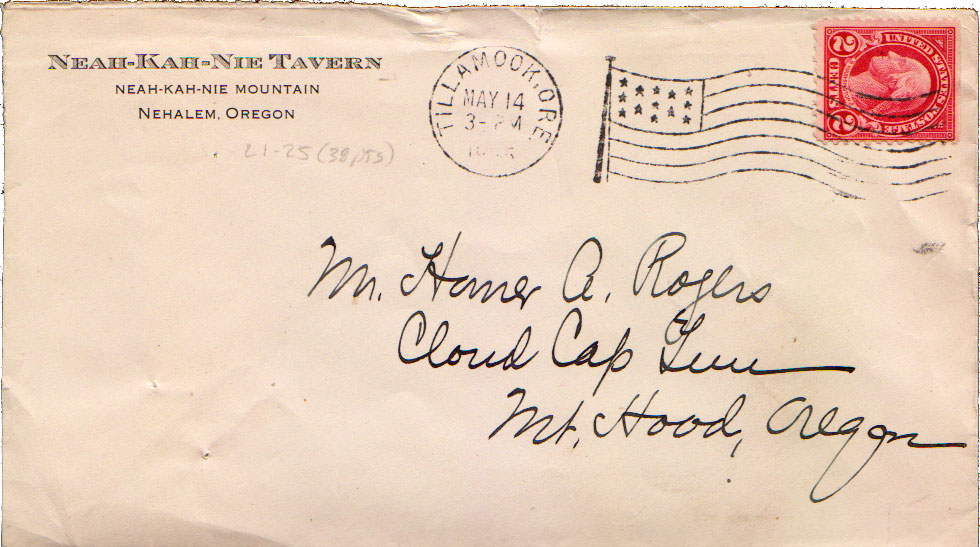 NEAH-KAH-NIE TAVERN
NEAH-KAH-NIE MOUNTAIN
NEHALEM, OREGON
L1-25 (38 pts)
TILLAMOOK, ORE
MAY 14
3-PM
UNITED STATES POSTAGE
2 2
Mr. Homer A. Rogers
Cloud Cap Inn
Mt. Hood, Oregon